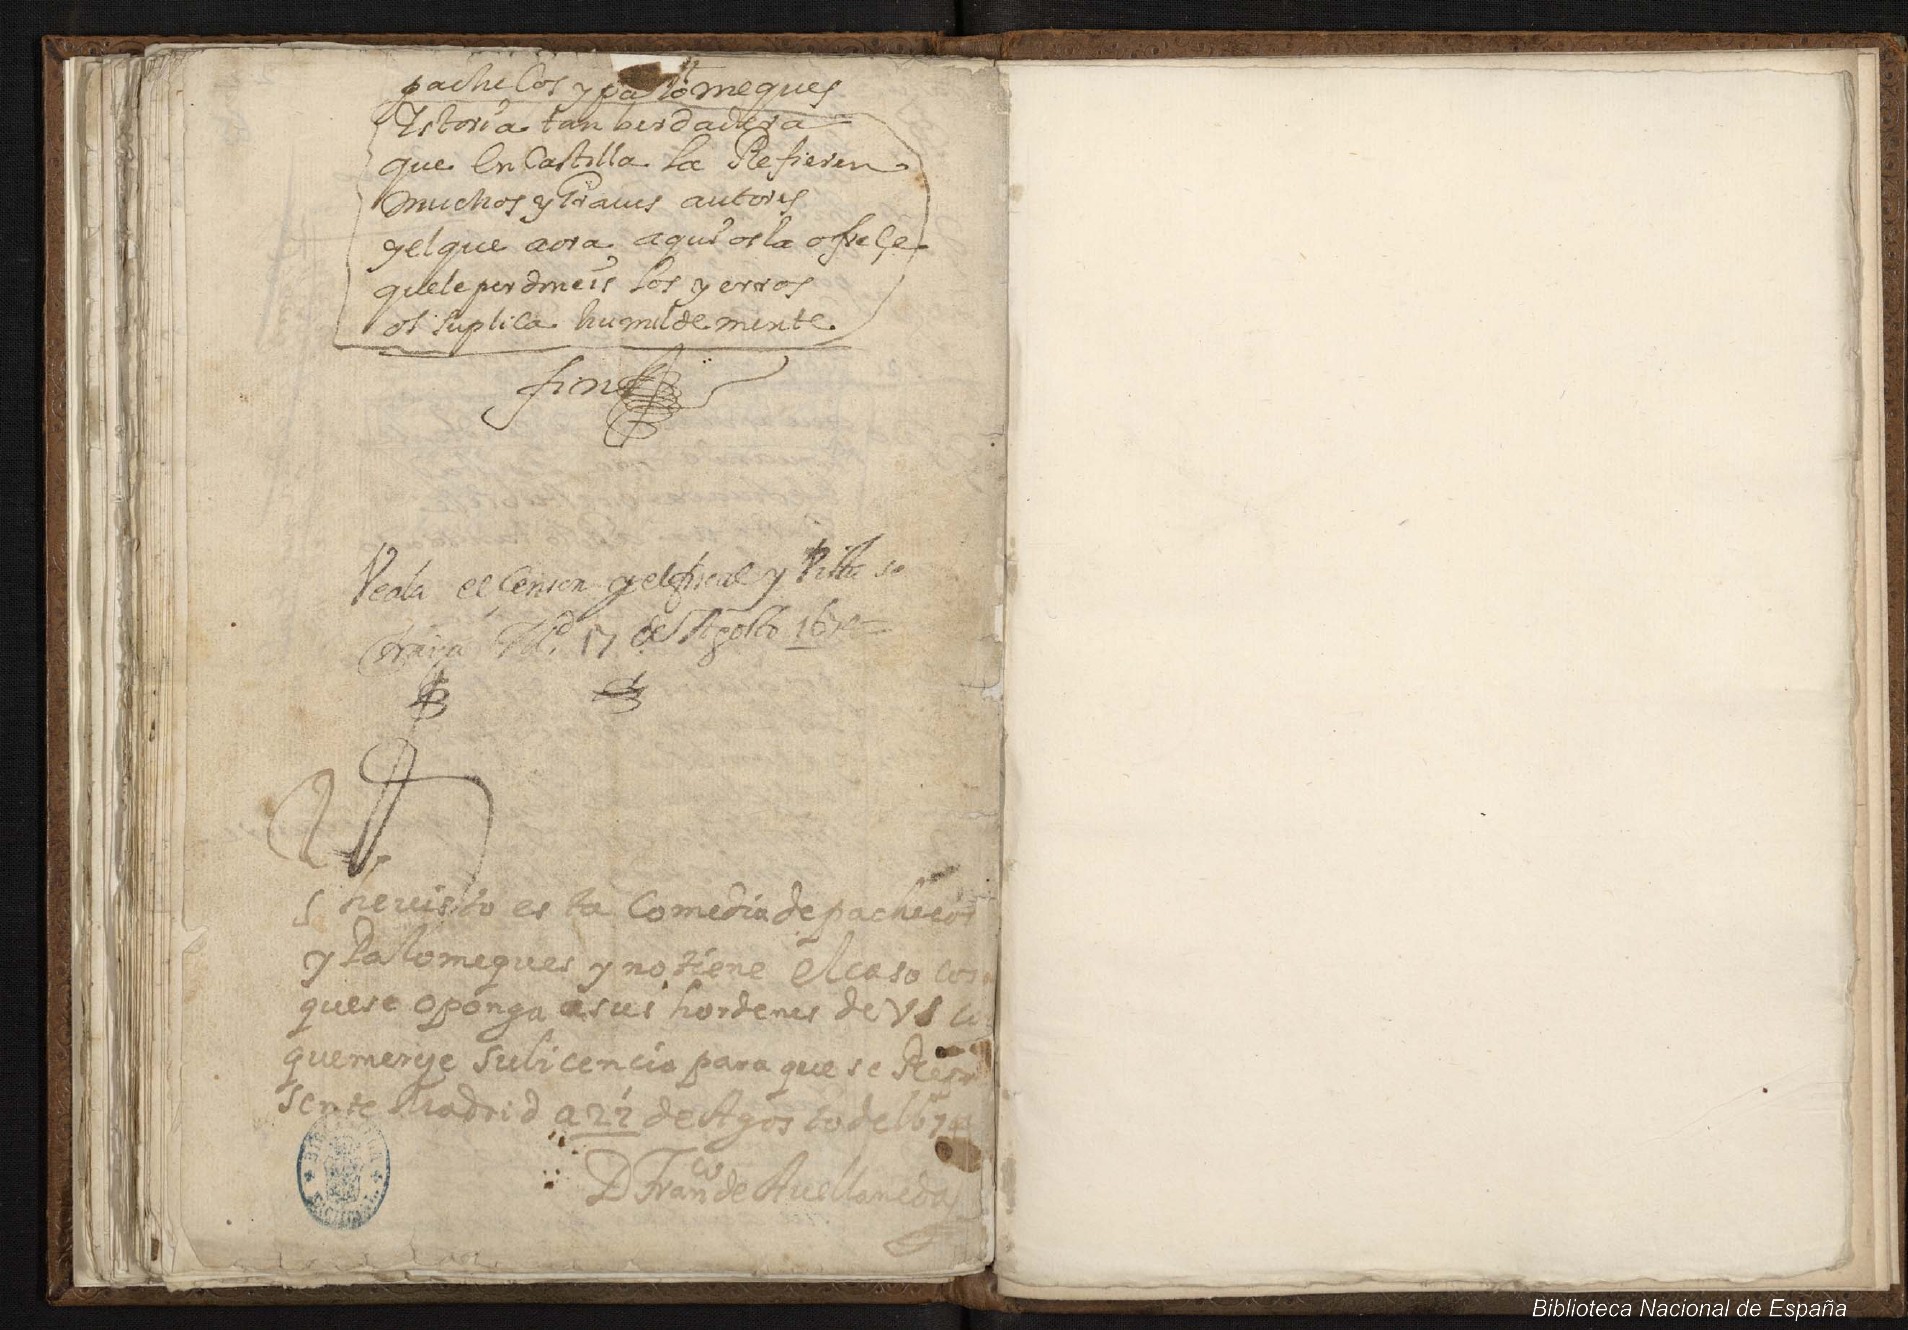 pachecos y palomeques
Istoria tan berdadera
que en Castilla la Refieren
muchos y Graues autores
y el que aora aqui os la ofreçe
que le perdoneis los yerros
os suplica humildemente
fin
Veala el Censor y el fiscal y Vista se
trayga Md. 17 de Agosto 167
he uisto esta Comedia de pachecos
y Palomeques y no tiene el caso cos
que se oponga a sus hordenes de VS
que mereze su licencia para que se Repre
sente Madrid a 22 de Agosto de 1674
D Franco de Auellaneda
Biblioteca Nacional de España